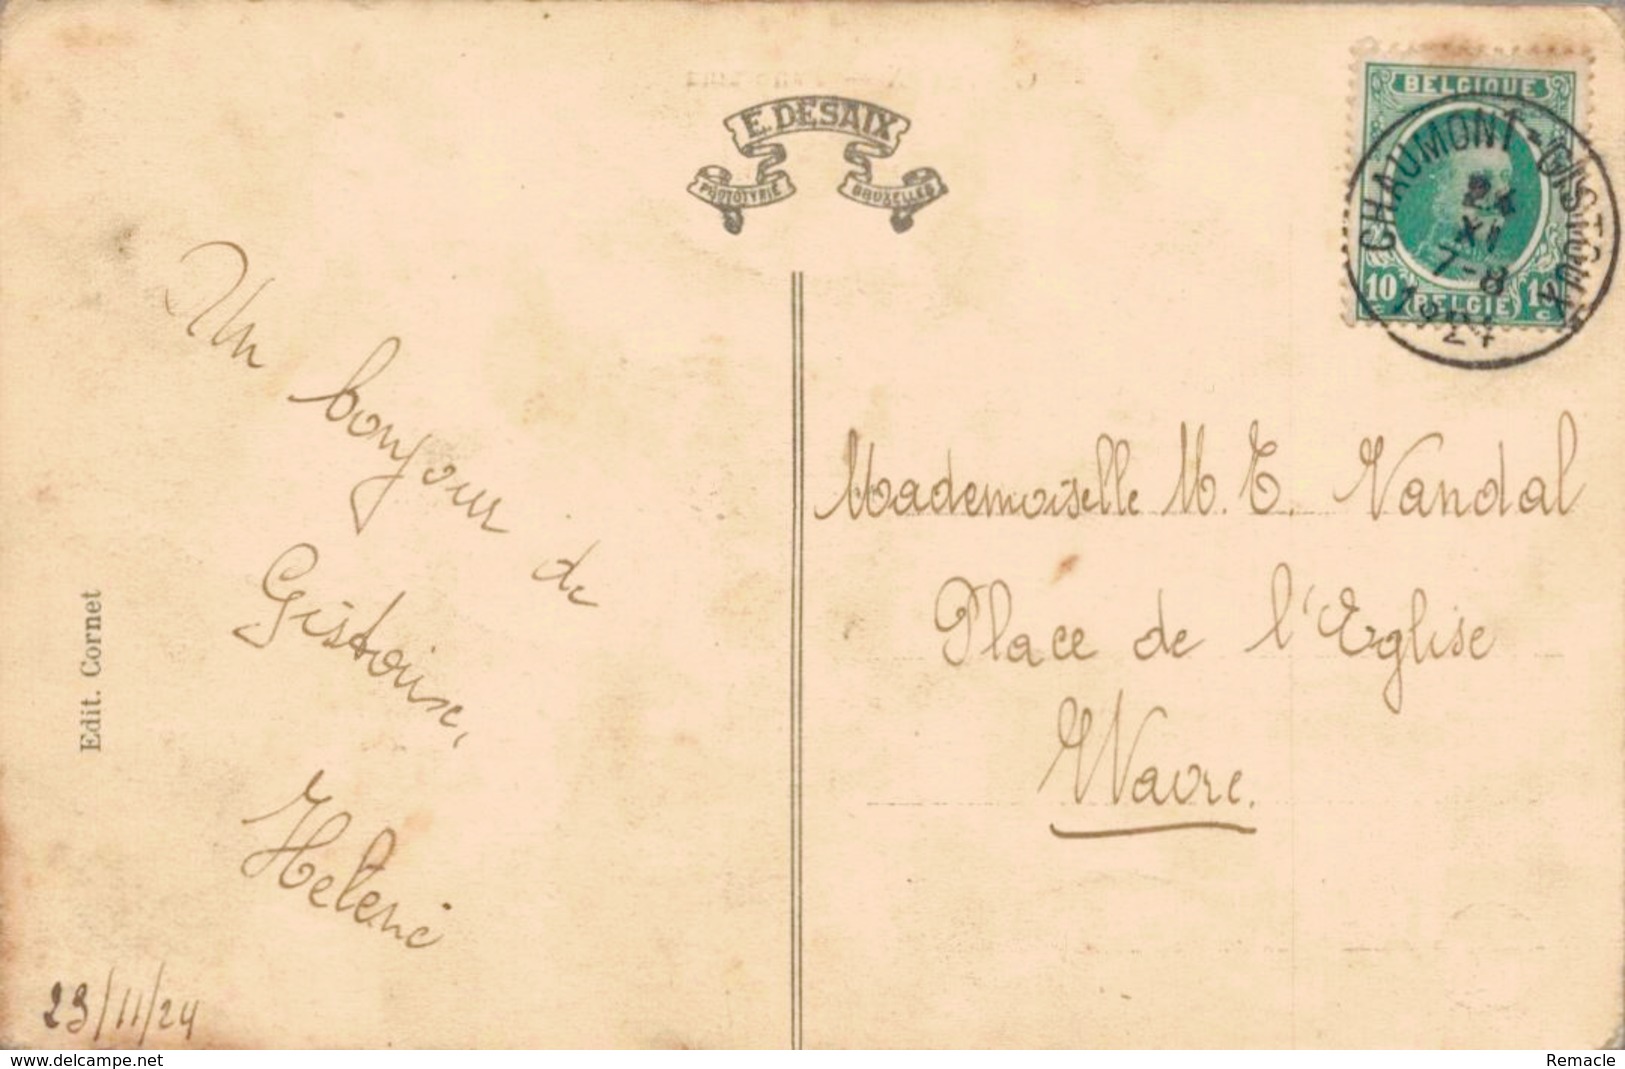 E. DESAIX
PHOTOTYPIE BRUXELLES
BELGIQUE
CHAUMONT-GISTOUX
24
XI
7-8
1924
10 c
BELGIE
Un bonjour de
Gistoux,
Helene
23/11/24
Edit. Cornet
Mademoiselle M. T. Vandal
Place de l'Eglise
Wavre.
delcampe.net
Remacle